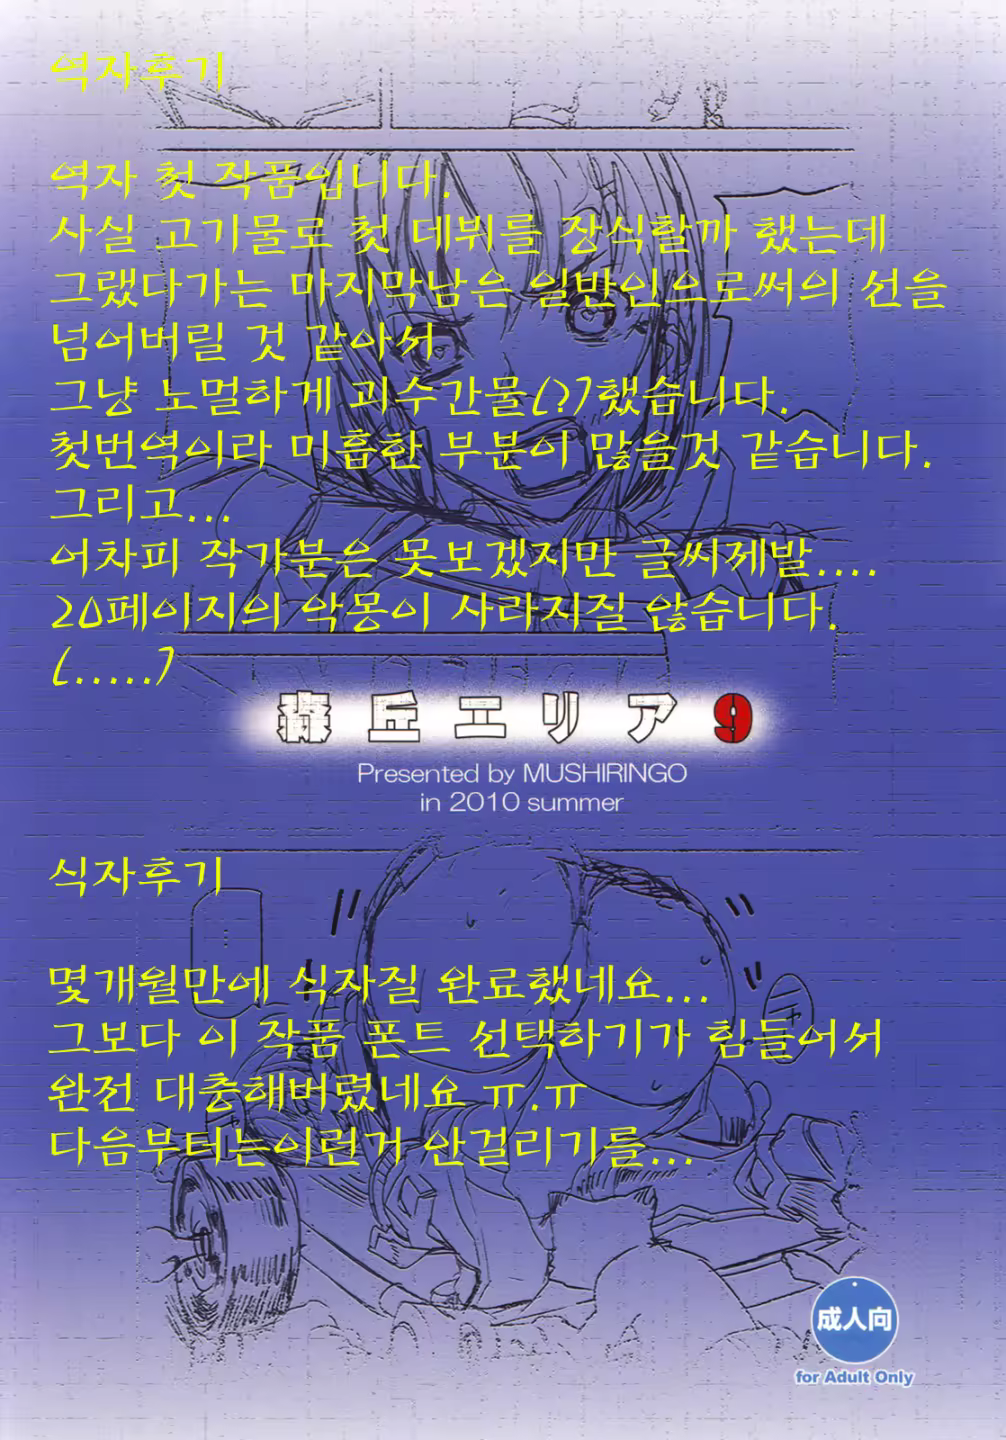 역자후기
역자 첫 작품입니다.
사실 고기물로 첫 데뷔를 장식할까 했는데
그랬다가는 마지막남은 일반인으로써의 선을
넘어버릴 것 같아서
그냥 노멀하게 괴수간물(?)했습니다.
첫번역이라 미흡한 부분이 많을것 같습니다.
그리고...
어차피 작가분은 못보겠지만 글씨제발....
20페이지의 악몽이 사라지질 않습니다.
(.....)
森丘エリア9
Presented by MUSHIRINGO
in 2010 summer
식자후기
몇개월만에 식자질 완료했네요...
그보다 이 작품 폰트 선택하기가 힘들어서
완전 대충해버렸네요 ㅠ.ㅠ
다음부터는이런거 안걸리기를...
成人向
for Adult Only